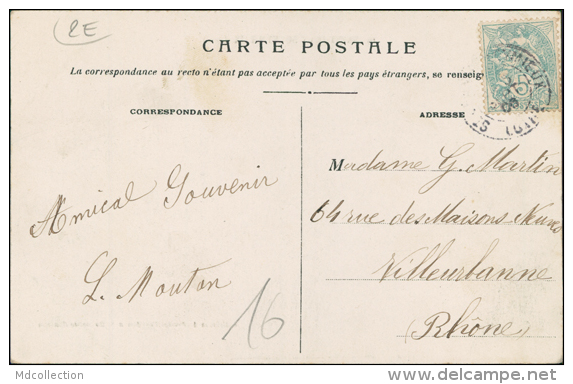 2E
CARTE POSTALE
La correspondance au recto n'étant pas acceptée par tous les pays étrangers, se renseig
CORRESPONDANCE
ADRESSE
Amical Souvenir
L. Mouton
16
Madame G. Martin
64 rue des Maisons Neuves
Villeurbanne
(Rhône)
Mdcollection
www.delcampe.net